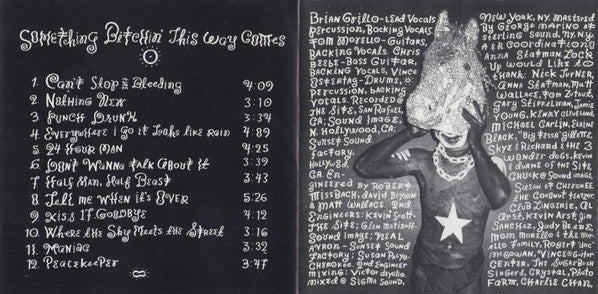 Something Bitchin' This Way Comes
1. Can't Stop the Bleeding 4:09
2. Nothing New 3:10
3. Punch Drunk 3:34
4. Everywhere i Go it Looks like rain 4:89
5. 24 Hour Man 4:25
6. Don't Wanna Talk About it 3:39
7. Half Man, Half Beast 3:43
8. Tell me When it's Over 5:26
9. Kiss it Goodbye 4:12
10. Where the Sky Meets the Street 3:16
11. Maniac 3:32
12. Peacekeeper 3:47
Brian Grillo-Lead Vocals
Percussion, Backing Vocals
Tom Morello-Guitars,
Backing Vocals. Chris
Beebe-Bass Guitar,
Backing Vocals, Vince
Ostertag-Drums,
Percussion, backing
vocals. Recorded@
The Site, San Rafael,
CA; Sound Image,
N. Hollywood, CA;
Sunset Sound
Factory,
Hollywood,
CA. En-
gineered by Robert
Missbach, David Bryson
& Matt Wallace. 2nd
Engineers: Kevin Scott-
The Site; Glen
Sound Image;
Avron-Sunset Sound
Factory;
Cherokee. 2nd Engineer
mixing: Victor Deyglio.
mixed @ Sigma Sound,
New York, NY. Mastered
By George Marino at
Sterling Sound, NY, NY.
A&R Coordination
Anna Statman. Lock
Up would Like to
thank: Nick Turner,
Anna Statman, Matt
Wallace, Tom Zutaut,
Gary Stiffelman, Jamie
Young, Henry Olivlund,
Michael Carlin, Elaine
Black, "Big Tessa" Gillette
Skye & Richard & the 3
wonder dogs, Kevin
& Duane of the Site
Chuck@Sound Image,
Susan at Cherokee
the Coconut Teazer
Club Lingerie, Al
Arst, Kevin Arst, Jim
Sanchez, Judy Bean,
Mom Morello & the Mor-
ello Family, Robert "Doc"
McGowan, Vince@Guitar
Center, The Sugarbush
Singers, Crystal, Photo
Farm, Charlie Chan,